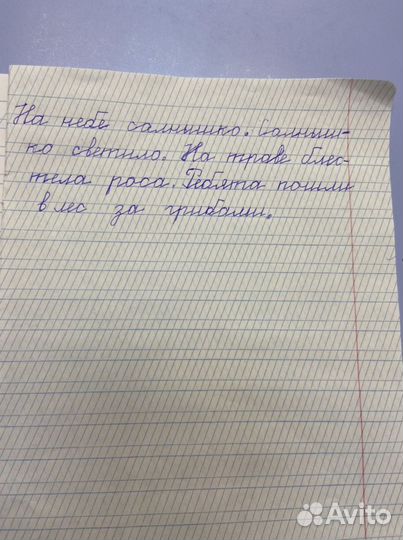 На небе солнышко. Солныш-
ко светило. На траве блес-
тела роса. Ребята пошли
в лес за грибами.
Avito